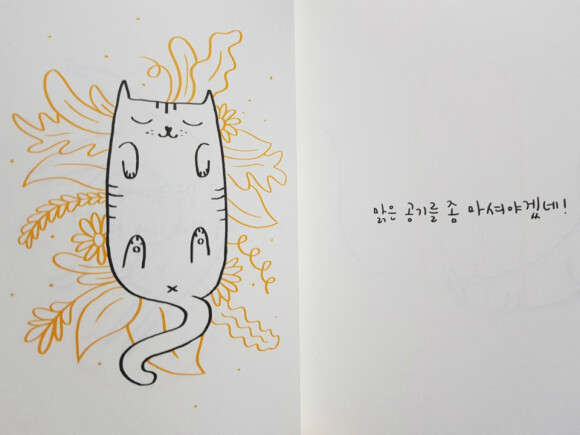 맑은 공기를 좀 마셔야겠네!